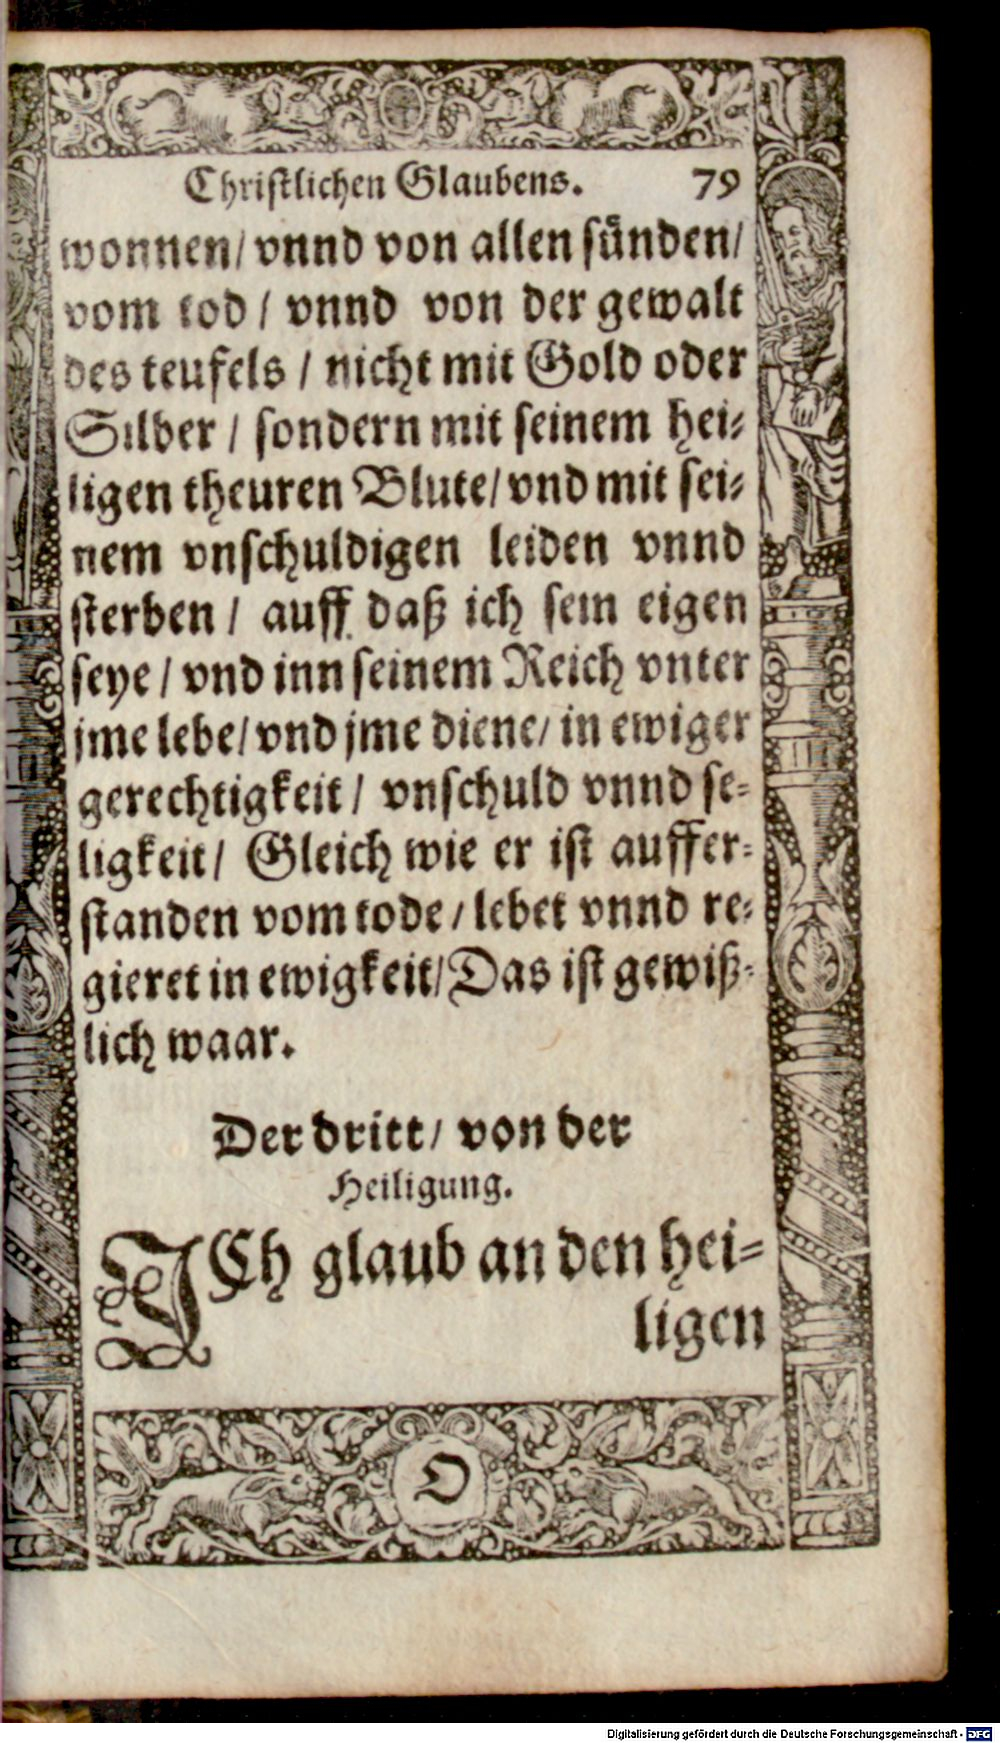 Christlichen Glaubens. 79
wonnen/ vnnd von allen sünden/
vom tod / vnnd von der gewalt
des teufels / nicht mit Gold oder
Silber / sondern mit seinem hei-
ligen theuren Blute/ vnd mit sei-
nem vnschuldigen leiden vnnd
sterben / auff daß ich sein eigen
seye / vnd inn seinem Reich vnter
jme lebe/ vnd jme diene/ in ewiger
gerechtigkeit / vnschuld vnnd se-
ligkeit/ Gleich wie er ist auffer-
standen vom tode / lebet vnnd re-
gieret in ewigkeit/ Das ist gewiß-
lich waar.
Der dritt/ von der
Heiligung.
ICh glaub an den hei-
ligen
O
Digitalisierung gefördert durch die Deutsche Forschungsgemeinschaft - DFG